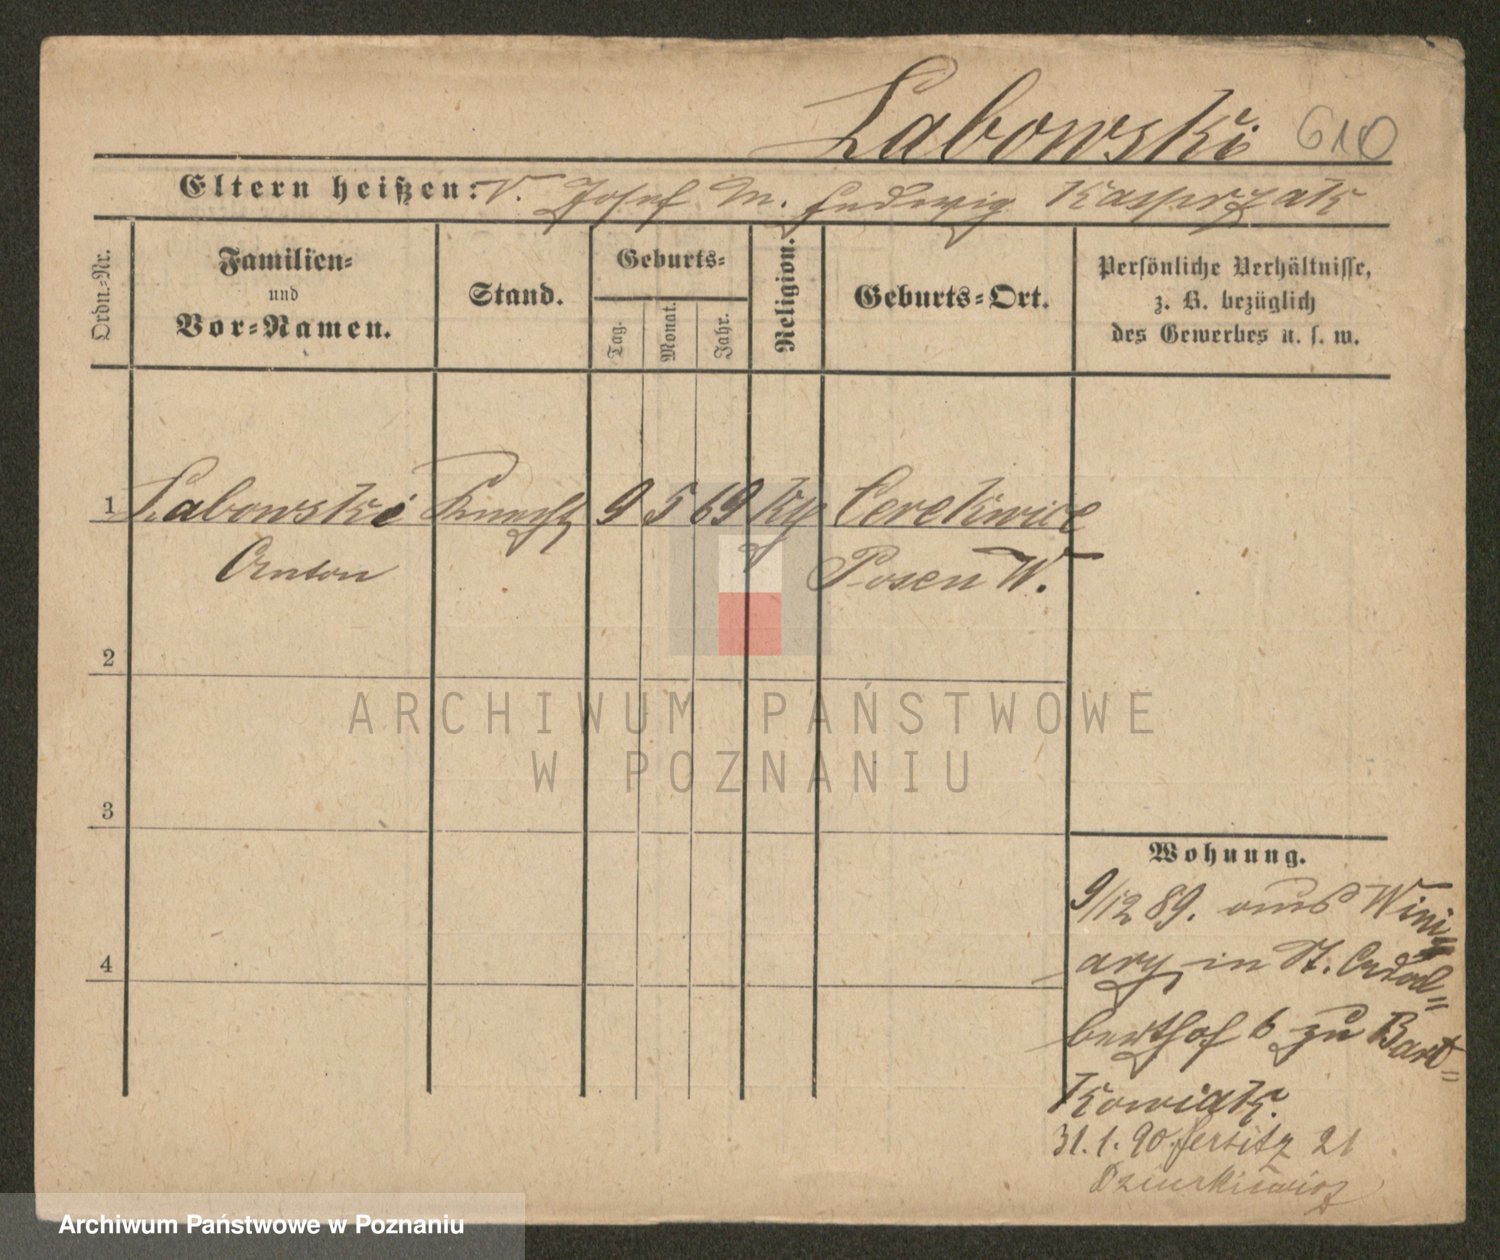 Labowski 610
Eltern heißen: V. Josef M. Hedwig Kasprzak
Ordn.-Nr.
Familien-
und
Vor-Namen.
Stand.
Geburts-
Tag.
Monat.
Jahr.
Religion.
Geburts-Ort.
Persönliche Verhältnisse,
z. B. bezüglich
des Gewerbes u. s. w.
1 Labowski Knecht 9 5 69 kg Cerekwice
Anton Posen W.
2
3
4
Wohnung.
9/12 89. aus Wini-
ary in St. Adal-
berthof 6 zu Bart-
kowiak.
31.1.90 Jersitz 21
Dziurkiewicz
ARCHIWUM PAŃSTWOWE
W POZNANIU
Archiwum Państwowe w Poznaniu